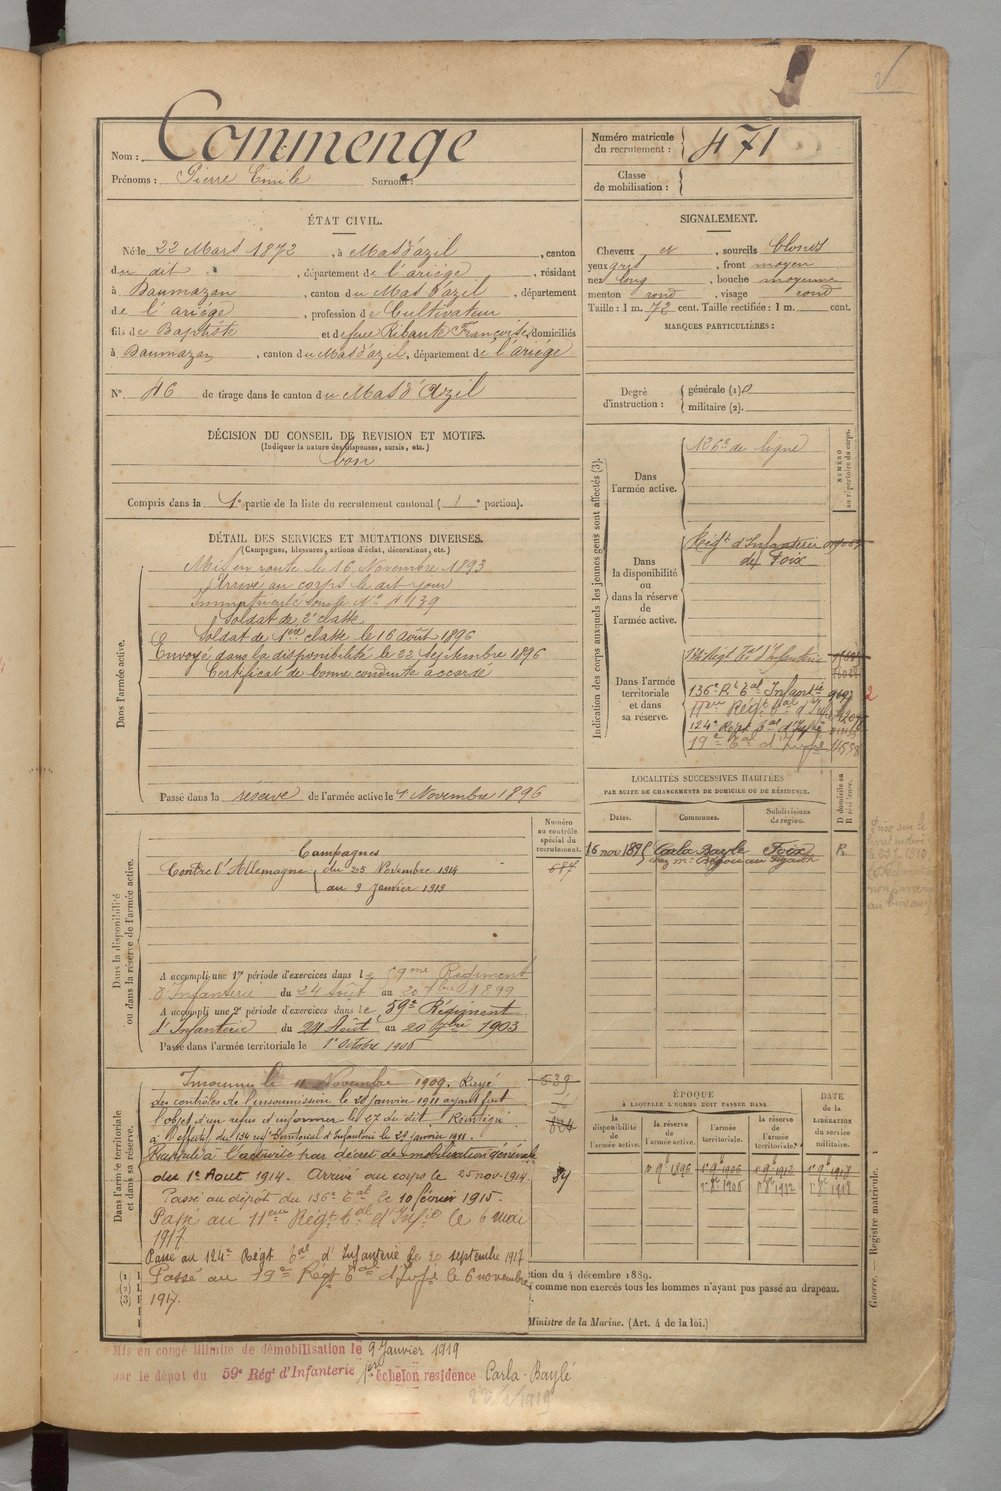 Nom : Commenge
Prénoms : Pierre Emile Surnom :
Numéro matricule du recrutement : 471
Classe de mobilisation :
ÉTAT CIVIL.
Né le 22 Mars 1872, à Mas d'azil, canton
du dit, département de l'ariége, résidant
à Daumazan, canton du Mas d'azil, département
de l'ariége, profession de Cultivateur
fils de Baptiste et de feue Ribaute Françoise, domiciliés
à Daumazan, canton du Mas d'azil, département de l'ariége
N° 46 de tirage dans le canton du Mas d'Azil
SIGNALEMENT.
Cheveux et, sourcils blonds
yeux gris, front moyen
nez long, bouche moyenne
menton rond, visage rond
Taille : 1 m. 72 cent. Taille rectifiée : 1 m. cent.
MARQUES PARTICULIÈRES :
Degré d'instruction : générale (1) 0
militaire (2).
DÉCISION DU CONSEIL DE REVISION ET MOTIFS.
(Indiquer la nature des dispenses, sursis, etc.)
bon
Compris dans la 1e partie de la liste du recrutement cantonal ( 1e portion).
DÉTAIL DES SERVICES ET MUTATIONS DIVERSES.
(Campagnes, blessures, actions d'éclat, décorations, etc.)
Dans l'armée active.
Mis en route le 16 Novembre 1893
Arrivé au corps le dit jour
Immatriculé sous le N° 4139
Soldat de 2e classe
Soldat de 1ere classe le 16 août 1896
Envoyé dans la disponibilité le 22 Septembre 1896
Certificat de bonne conduite accordé
Passé dans la réserve de l'armée active le 1 Novembre 1896
Indication des corps auxquels les jeunes gens sont affectés (3).
NUMÉRO au répertoire du corps.
Dans l'armée active.
126e de ligne
Dans la disponibilité ou dans la réserve de l'armée active.
Régt d'Infanterie
de Foix
Dans l'armée territoriale et dans sa réserve.
134 Régt Tal d'Infanterie
136e Rt Tal Infantie
11eme Régt Tal d'Inf
124e Régt Tal d'Infie
19e Tal d'Infie
2
LOCALITÉS SUCCESSIVES HABITÉES
PAR SUITE DE CHANGEMENTS DE DOMICILE OU DE RÉSIDENCE.
Dates. Communes. Subdivisions de région. D domicile ou R résidence.
Carla Bayle Foix R
Dans la disponibilité ou dans la réserve de l'armée active.
Numéro au contrôle spécial du recrutement.
687
Campagnes
Contre l'Allemagne du 25 Novembre 1914
au 9 Janvier 1919
A accompli une 1e période d'exercices dans le 59me Régiment
d'Infanterie du 24 Août au 20 7bre 1899
A accompli une 2e période d'exercices dans le 59e Régiment
d'Infanterie du 24 Août au 20 7bre 1903
Passé dans l'armée territoriale le 1er Octobre 1906
Dans l'armée territoriale et dans sa réserve.
Insoumis le 11 Novembre 1909. Rayé
des contrôles de l'insoumission le 28 janvier 1911 ayant fait
l'objet d'un refus d'informer le 27 du dit. Réintégré
à l'effectif du 134 régt territorial d'Infanterie le 29 janvier 1911.
Rappelé à l'activité par décret de mobilisation générale
du 1er Aout 1914. Arrivé au corps le 25 nov. 1914.
Passé au dépot du 136e Tal le 10 février 1915.
Passé au 11eme Régt Tal d'Infie le 6 mai
1917.
Passé au 124e Régt Tal d'Infanterie le 20 septembre 1917
Passé au 19e Régt Tal d'Infie le 6 novembre
1917.
84
ÉPOQUE
À LAQUELLE L'HOMME DOIT PASSER DANS
la disponibilité de l'armée active. la réserve de l'armée active. l'armée territoriale. la réserve de l'armée territoriale.
DATE de la LIBÉRATION du service militaire.
1er 9bre 1896 1er 9bre 1906 1er 9bre 1912 1er 9bre 1918
1er 8bre 1906 1er 8bre 1912 1er 8bre 1918
(1)
(2)
(3)
tion du 4 décembre 1889.
comme non exercés tous les hommes n'ayant pas passé au drapeau.
Ministre de la Marine. (Art. 4 de la loi.)
Guerre. — Registre matricule. 1
Mis en congé illimité de démobilisation le 9 Janvier 1919
par le dépot du 59e Régt d'Infanterie 1er échelon residence Carla-Baylé